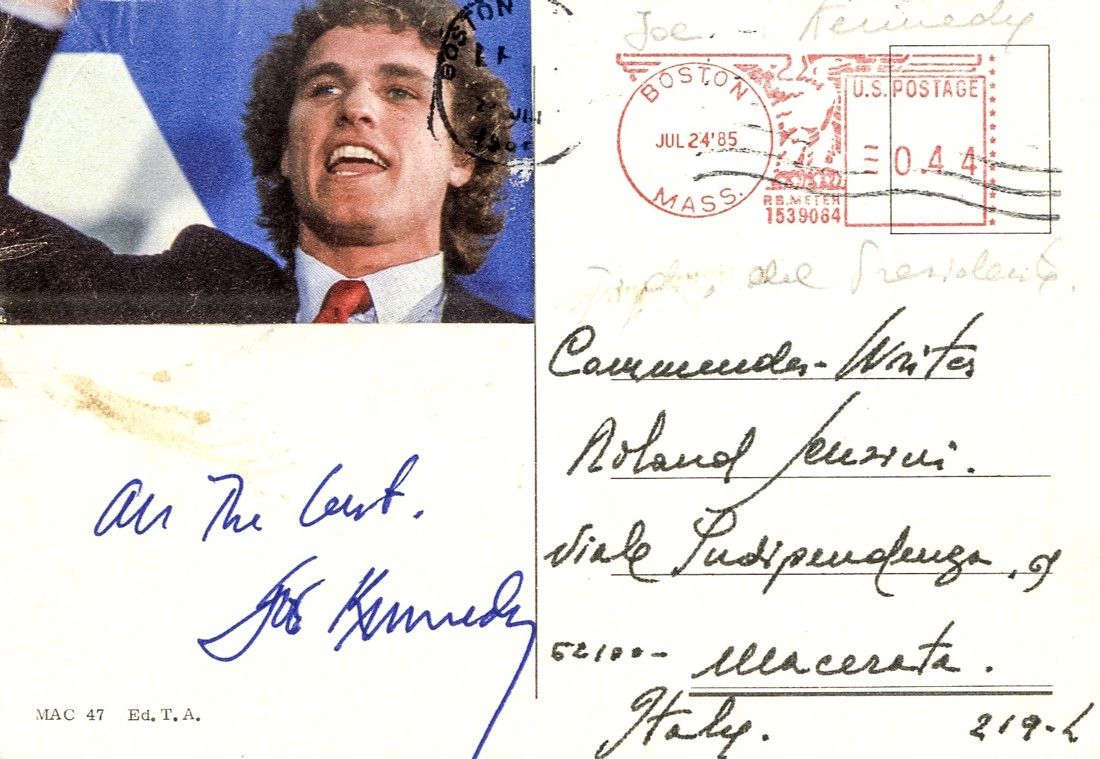 Joe - Kennedy
BOSTON
BOSTON
JUL 24 '85
MASS.
U.S. POSTAGE
0.44
P.B. METER
1539064
del Presidente.
Commender-Writer
Roland Sensini.
Viale Indipendenza, 9
All The best.
Joe Kennedy
62100- Macerata.
Italy.
219-L
MAC 47 Ed. T. A.